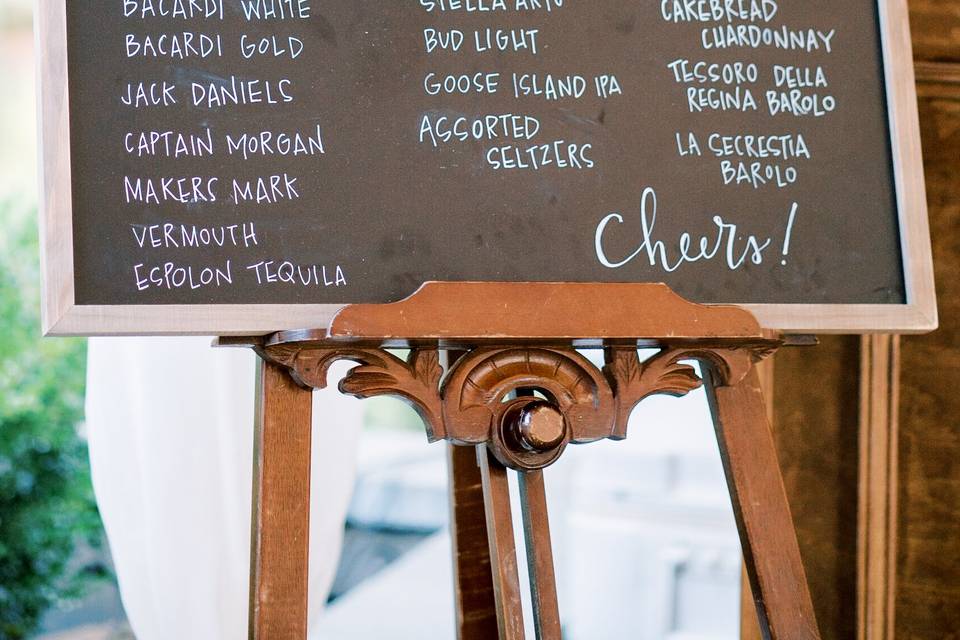 BACARDI WHITE
BACARDI GOLD
JACK DANIELS
CAPTAIN MORGAN
MAKERS MARK
VERMOUTH
ESPOLON TEQUILA
STELLA ARTO
BUD LIGHT
GOOSE ISLAND IPA
ASSORTED
SELTZERS
CAKEBREAD
CHARDONNAY
TESSORO DELLA
REGINA BAROLO
LA SECRESTIA
BAROLO
Cheers!